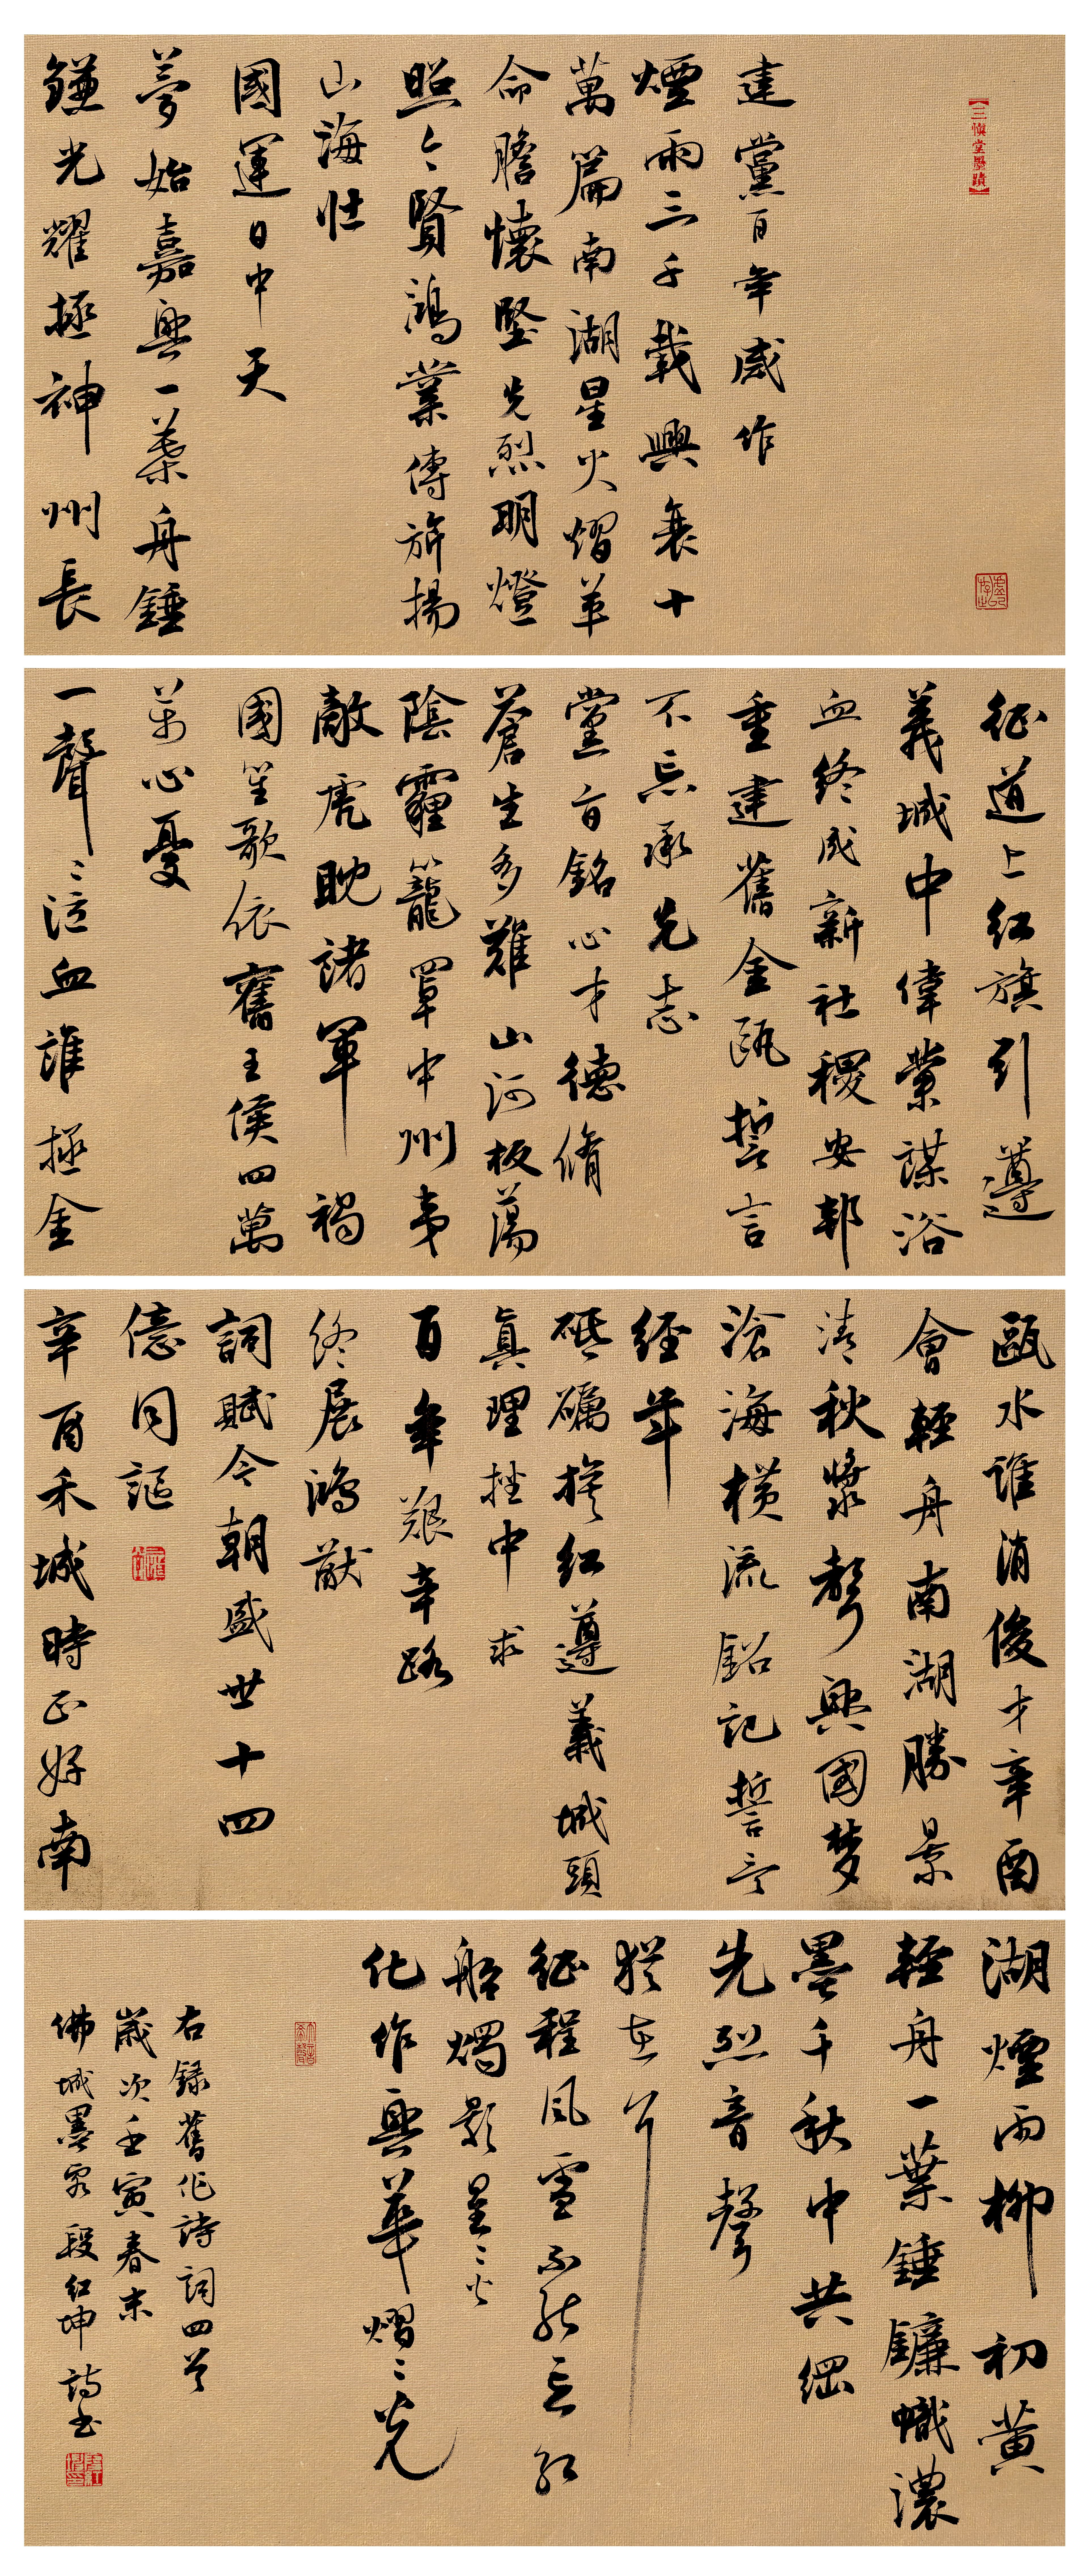 【三慎堂墨蹟】
建黨百年感作
煙雨三千載興衰十
萬篇南湖星火熠革
命膽懷堅先烈明燈
照今賢鴻業傳旂揚
山海壯
國運日中天
夢始嘉興一葉舟錘
鐮光耀拯神州長
征道上紅旗引遵
義城中偉業謀浴
血終成新社稷安邦
重建舊金甌誓言
不忘承先志
黨旨銘心才德脩
蒼生多難山河板蕩
陰霾籠罩中州夷
敵虎眈諸軍禍
國笙歌依舊王侯四萬
萬心憂
一聲聲泣血誰拯金
甌水誰消俊才辛酉
會輕舟南湖勝景
清秋漿聲興國夢
滄海橫流銘記誓言
經年
砥礪旗紅遵義城頭
真理坐中求
百年艱辛路
終展鴻猷
詞賦今朝盛世十四
億同謳
辛酉禾城時正好南
湖煙雨柳初黃
輕舟一葉錘鐮幟濃
墨千秋中共綱
先烈音聲
猶在耳
征程風雪不能忘紅
船燭影星星火
化作興華熠熠光
右錄舊作詩詞四首
歲次壬寅春末
佛城墨客段紅坤詩書